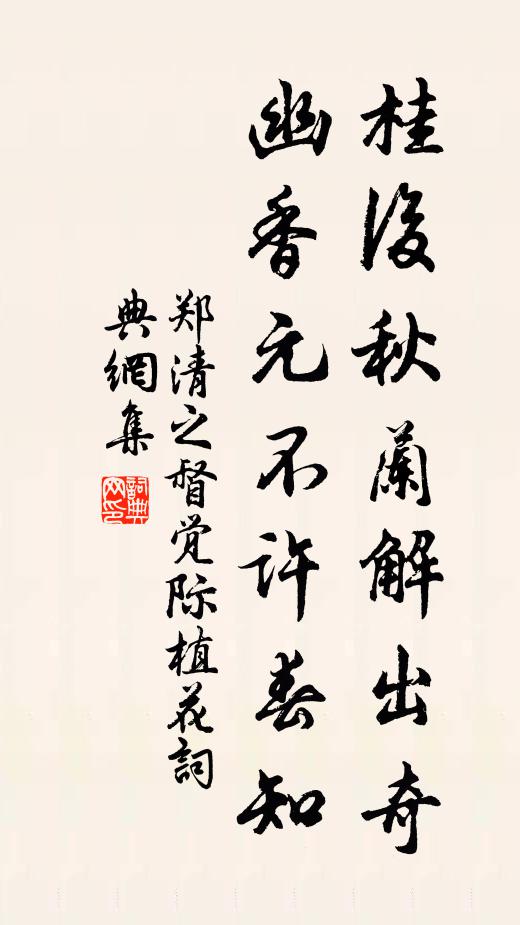 桂後秋蘭解出奇
幽香元不许春知
郑清之督觉际植花詞
典網集
詞典
网印